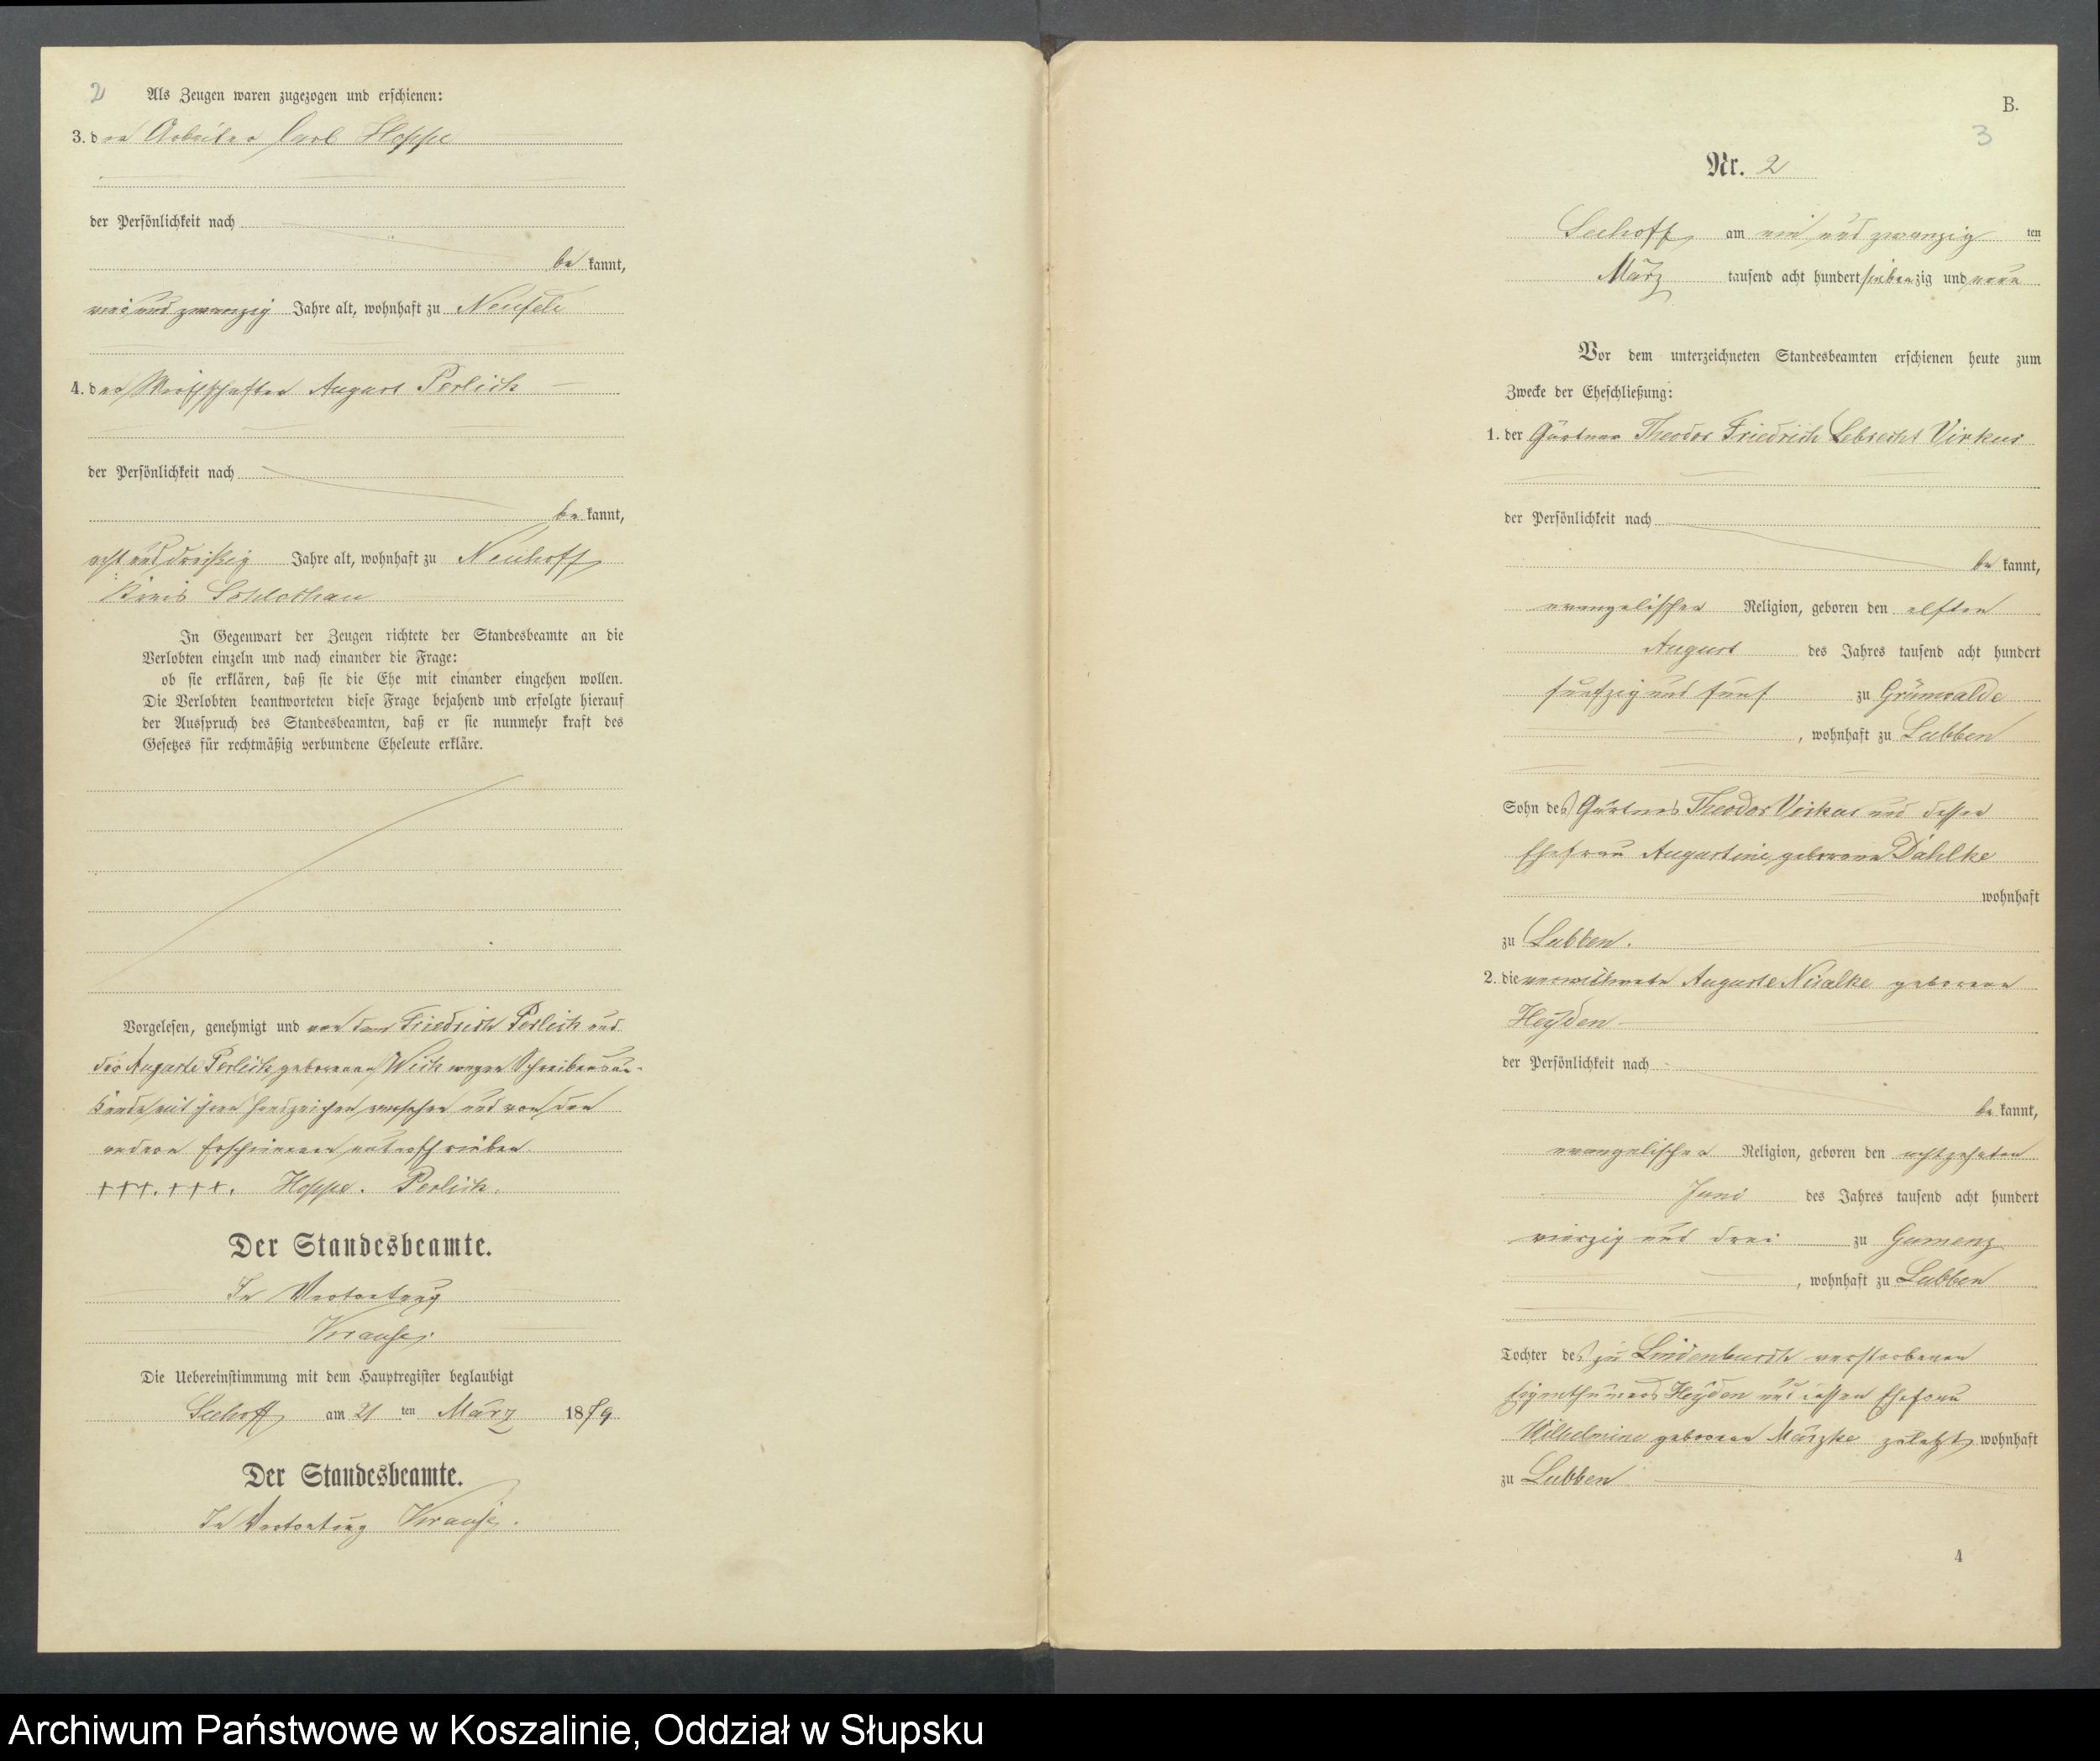 2
Als Zeugen waren zugezogen und erschienen:
3. der Arbeiter Carl Hoppe
der Persönlichkeit nach
be kannt,
vier und zwanzig Jahre alt, wohnhaft zu Neufeld
4. der Wirthschafter August Perlich
der Persönlichkeit nach
be kannt,
acht und dreißig Jahre alt, wohnhaft zu Neuhoff
Kreis Schlochau
In Gegenwart der Zeugen richtete der Standesbeamte an die
Verlobten einzeln und nach einander die Frage:
ob sie erklären, daß sie die Ehe mit einander eingehen wollen.
Die Verlobten beantworteten diese Frage bejahend und erfolgte hierauf
der Ausspruch des Standesbeamten, daß er sie nunmehr kraft des
Gesetzes für rechtmäßig verbundene Eheleute erkläre.
Vorgelesen, genehmigt und von dem Friedrich Perlich und
der Auguste Perlich geborenen Wich wegen Schreibensun-
kunde mit ihren Handzeichen versehen und von den
andern Erschienenen unterschrieben.
+++. +++. Hoppe. Perlich.
Der Standesbeamte.
In Vertretung
Krause.
Die Uebereinstimmung mit dem Hauptregister beglaubigt
Seehoff am 21 ten März 1879
Der Standesbeamte.
In Vertretung Krause.
B.
3
Nr. 2
Seehoff am ein und zwanzig ten
März tausend acht hundert siebenzig und neun
Vor dem unterzeichneten Standesbeamten erschienen heute zum
Zwecke der Eheschließung:
1. der Gärtner Theodor Friedrich Lebrecht Virkus
der Persönlichkeit nach
be kannt,
evangelischer Religion, geboren den elften
August des Jahres tausend acht hundert
fünfzig und fünf zu Grünwalde
, wohnhaft zu Lubben
Sohn des Gärtners Theodor Virkus und dessen
Ehefrau Augustine, geborene Dahlke
wohnhaft
zu Lubben.
2. die verwittwete Auguste geborene
Heyden
der Persönlichkeit nach
be kannt,
evangelischer Religion, geboren den achtzehnten
Juni des Jahres tausend acht hundert
vierzig und drei zu Gumenz
, wohnhaft zu Lubben
Tochter des zu Lindenbusch verstorbenen
Eigenthümers Heyden und dessen Ehefrau
Wilhelmine geborene zuletzt wohnhaft
zu Lubben
4
Archiwum Państwowe w Koszalinie, Oddział w Słupsku